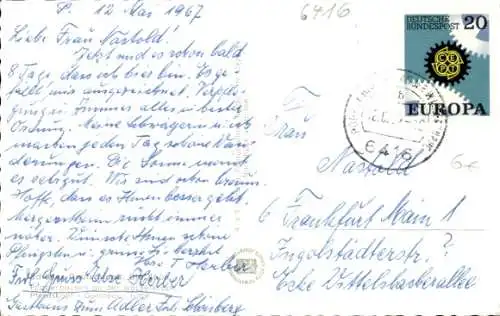 P. 12 Mai 1967
6416
Liebe Frau Nastold!
Jetzt sind es schon bald
8 Tage, dass ich hier bin. Es ge-
fällt mir ausgezeichnet. Verpfle-
gung u. Zimmer alles in bester
Ordnung. Meine Schwägerin u. ich
machen jeden Tag schöne Wan-
derungen. Die Sonne meint
es sehr gut. Wir sind schon braun.
Hoffe, dass es Ihnen besser geht.
nicht immer
Wünsche Ihnen schöne
Pfingsten u. grüsse Sie herzlich
Ihre T. Herber
Frdl. Gruss Else Herber
Gasthaus zum Adler
DEUTSCHE
BUNDESPOST
20
CEPT
EUROPA
6416
6€
Frau
Nastold
6 Frankfurt Main 1
Ingolstädterstr. ?
Ecke Wittelsbacherallee